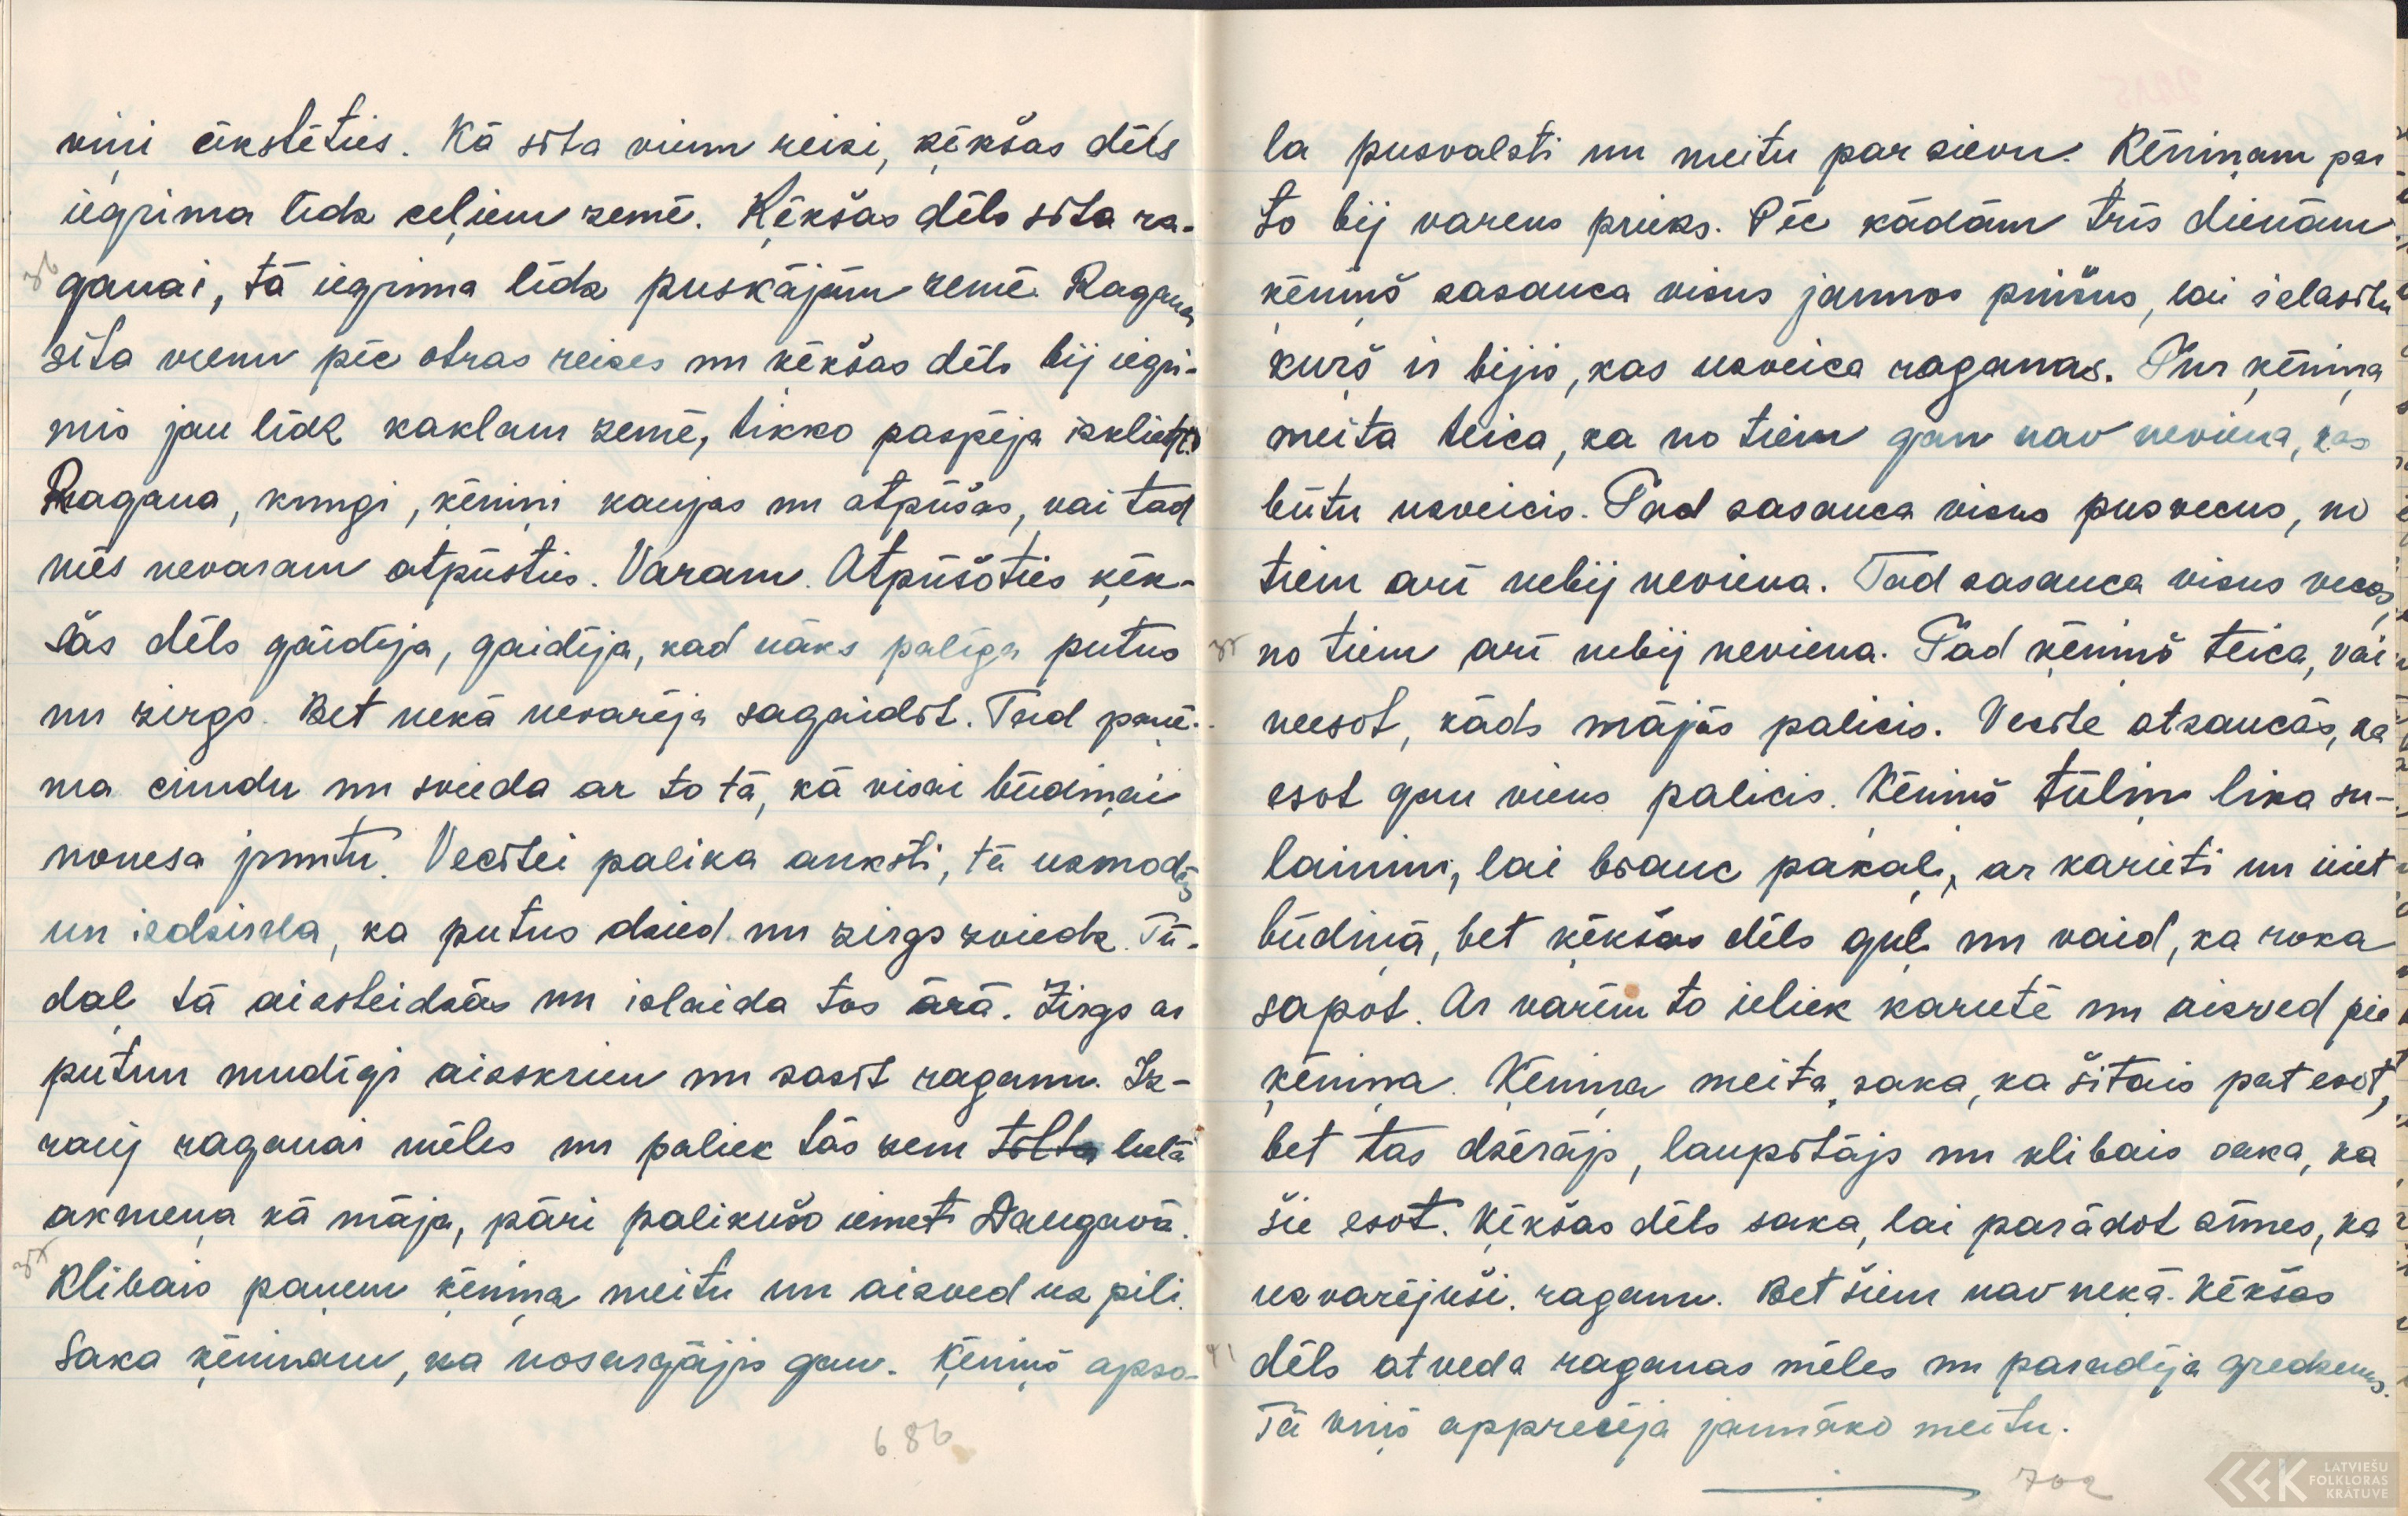 viņi ēkstēties. Kā sita vienu reizi, ķēkšas dēls
iegrima līdz ceļiem zemē. Ķēkšas dēls sita ra-
36
ganai, tā iegrima līdz puskājām zemē. Ragana
sita vienu pēc otras reizes un ķēkšas dēls bij iegri-
mis jau līdz kaklam zemē, tikko paspēja izkliegt:
Ragana, kungi, ķēniņi kaujas un atpūšas, vai tad
mēs nevaram atpūsties. Varam. Atpūšoties ķēk-
šas dēls gaidīja, gaidīja, kad nāks palīga putns
un zirgs. Bet nekā nevarēja sagaidīt. Tad paņē-
ma cimdu un svieda ar to tā, kā visai būdiņai
nonesa jumtu. Vecītei palika auksti, tā uzmodās
un izdzirda, ka putns dzied un zirgs zviedz. Tū-
daļ tā aizsteidzās un izlaida tos ārā. Zirgs ar
putnu mudīgi aizskrien un sasit raganu. Iz-
rauj raganai mēles un paliek tās zem tilta lielā
akmeņa kā māja, pāri palikušo iemet Daugavā.
Klibais paņem ķēniņa meitu un aizved uz pili.
Saka ķēniņam, ka nosargājis gan. Ķēniņš apso-
686
la pusvalsti un meitu par sievu. Ķēniņam par
to bij varens prieks. Pēc kādām trīs dienām
ķēniņš sasauca visus jaunos puišus, lai izlasītu
kurš ir bijis, kas uzveica raganas. Tur ķēniņa
meita teica, ka no tiem gan nav neviena, kas
būtu uzveicis. Tad sasauca visus pusvecus, no
tiem arī nebij neviena. Tad sasauca visus vecos,
no tiem arī nebij neviena. Tad ķēniņš teica, vai
neesot, kāds mājās palicis. Vecīte atsaucās, ka
esot gan viens palicis. Ķēniņš tūliņ lika su-
lainim, lai brauc pakaļ, ar karieti un ieiet
būdiņā, bet ķēkšas dēls guļ un vaid, ka roka
sapot. Ar varēm to ieliek karietē un aizved pie
ķēniņa. Ķēniņa meita, saka, ka šitais pat esot,
bet tas dzērājs, laupītājs un klibais saka, ka
šie esot. Ķēkšas dēls saka, lai parādot zīmes, ka
uzvarējuši. raganu. Bet šiem nav nekā. Ķēkšas
41
dēls atveda raganas mēles un parādīja gredzenus.
Tā viņš apprecēja jaunāko meitu.
702
LATVIEŠU
FOLKLORAS
KRĀTUVE